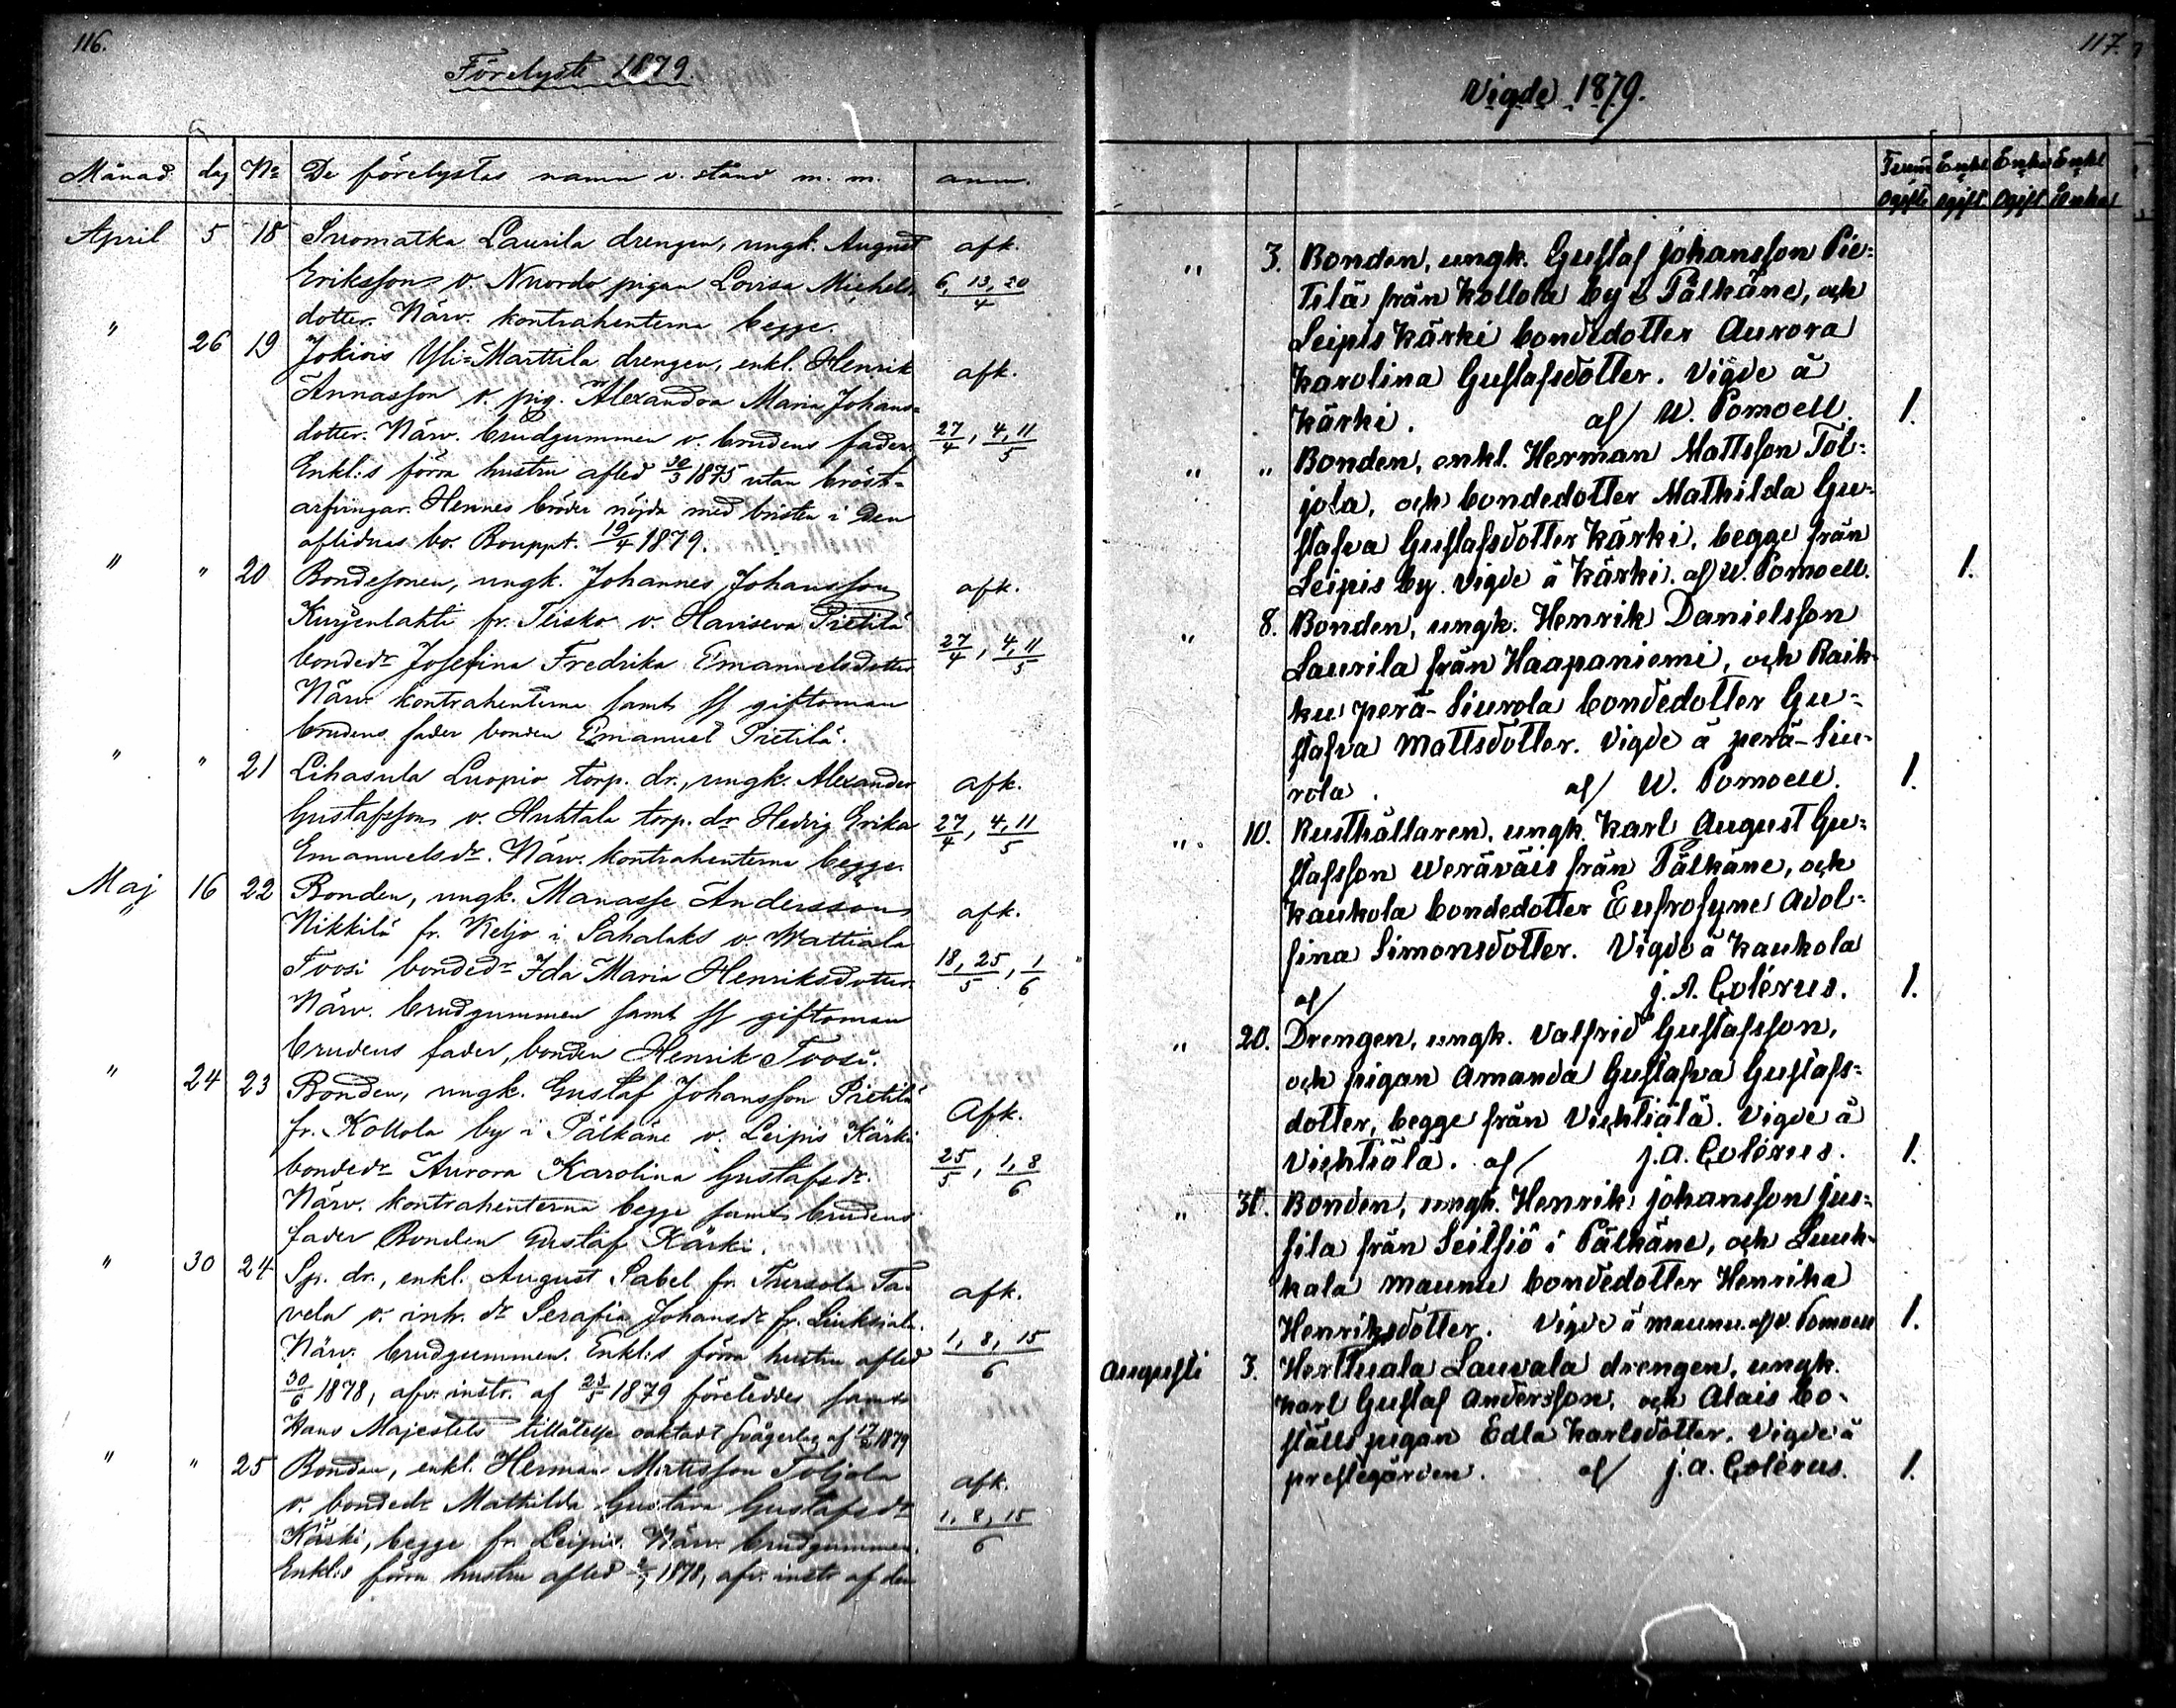 116.
Förelyste 1879.
Månad dag No De förelystes namn o. stånd m. m. anm.
April 5 18 Suomatka Laurila drengen, ungk. August afk.
Eriksson o. Nuordo pigan Lovisa Michels- 6, 13, 20/4
dotter. Närv. kontrahenterna begge.
" 26 19 Jokiois Yli-Marttila drengen, enkl. Henrik afk.
Annasson o. pig. Alexandra Maria Johans-
dotter. Närv. brudgummen o. brudens fader. 27/4, 4, 11/5
Enkl:s förra hustru afled 30/3 1875 utan bröst-
arfvingar. Hennes bröder nöjda med bristen i den
aflidnas bo. Bouppt. 19/4 1879.
" " 20 Bondesonen, ungk. Johannes Johansson afk.
Kurjenlahti fr. Teisko o. Haviseva Pietilä
bondedr Josefina Fredrika Emanuelsdotter 27/4, 4, 11/5
Närv. kontrahenterna samt ss giftoman
brudens fader bonden Emanuel Pietilä.
" " 21 Lihasula Luopio torp. dr., ungk. Alexander afk.
Gustafsson o. Huhtala torp. dr Hedvig Erika 27/4, 4, 11/5
Emanuelsdr. Närv. kontrahenterna begge.
Maj 16 22 Bonden, ungk. Manasse Andersson afk.
Nikkilä fr. Keljo i Sahalaks o. Wattiala
Toosi bondedr Ida Maria Henriksdotter. 18, 25/5, 1/6
Närv. brudgummen samt ss giftoman
brudens fader, bonden Henrik Toosi.
" 24 23 Bonden, ungk. Gustaf Johansson Pietilä Afk.
fr. Kollola by i Pälkäne o. Leipis Kärki
bondedr Aurora Karolina Gustafsdr. 25/5, 1, 8/6
Närv. kontrahenterna begge samt brudens
fader Bonden Gustaf Kärki.
" 30 24 Sp. dr., enkl. August Sabel fr. Tursola Ta- afk.
vela o. inh. dr Serafia Johansdr fr. Liuksiala.
Närv. brudgummen. Enkl:s förra hustru afled 1, 8, 15/6
30/6 1878, afv. instr. af 23/5 1879 företeddes samt
Hans Majestets tillåtelse oaktadt svågerlag af 1879
" " 25 Bonden, enkl. Herman Mattsson Toljola afk.
o. bondedr Mathilda Gustava Gustafsdr 1, 8, 15/6
Kärki, begge fr. Leipis. Närv. brudgummen.
Enkl:s förra hustru afled 1878, afv. instr af den
117.
Vigde 1879.
Ogifte Enkl Ogift Enka Ogift Enkl Enka
" 3. Bonden, ungk. Gustaf Johansson Pie-
tilä från Kollola by i Pälkäne, och
Leipis Kärki bondedotter Aurora
Karolina Gustafsdotter. Vigde å
Kärki. af W. Pomoell. 1.
" " Bonden, enkl. Herman Mattsson Tol-
jola, och bondedotter Mathilda Gu-
stafva Gustafsdotter Kärki, begge från
Leipis by. Vigde å Kärki. af W. Pomoell. 1.
" 8. Bonden, ungk. Henrik Danielsson
Laurila från Haapaniemi, och Raik-
ku perä-Siurola bondedotter Gu-
stafva Mattsdotter. Vigde å perä-Siu-
rola. af W. Pomoell. 1.
" 10. Rusthållaren, ungk. Karl August Gu-
stafsson Werävais från Pälkäne, och
Kaukola bondedotter Eufrosyne Adol-
fina Simonsdotter. Vigde å Kaukola
af J. A. Colérus. 1.
" 20. Drengen, ungk. Valfrid Gustafsson,
och pigan Amanda Gustafva Gustafs-
dotter, begge från Viehtiälä. Vigde å
Viehtiälä. af J. A. Colérus. 1.
" 31. Bonden, ungk. Henrik Johansson Jus-
sila från Seitsiö i Pälkäne, och Luuk-
kala Maunu bondedotter Henrika
Henriksdotter. Vigde å Maunu. af W. Pomoell 1.
Augusti 3. Herttuala Lauvala drengen, ungk.
Karl Gustaf Andersson, och Alais bo-
ställs pigan Edla Karlsdotter. Vigde å
prestegården. af J. A. Colérus. 1.